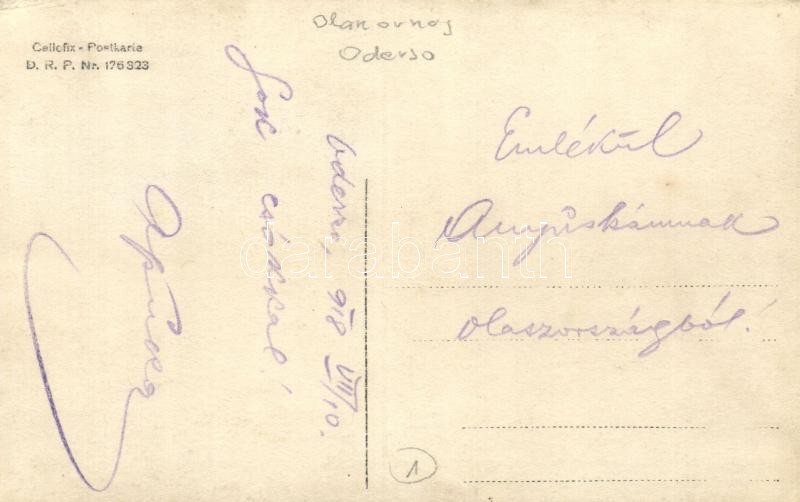 Cellofix - Postkarte
D. R. P. Nr. 176323
Olaszország
Oderzo
Oderzo, 918 VII/10.
Sok csókkal!
Apuka
Emlékül
Anyuskámnak
olaszországból!
1
darabanth